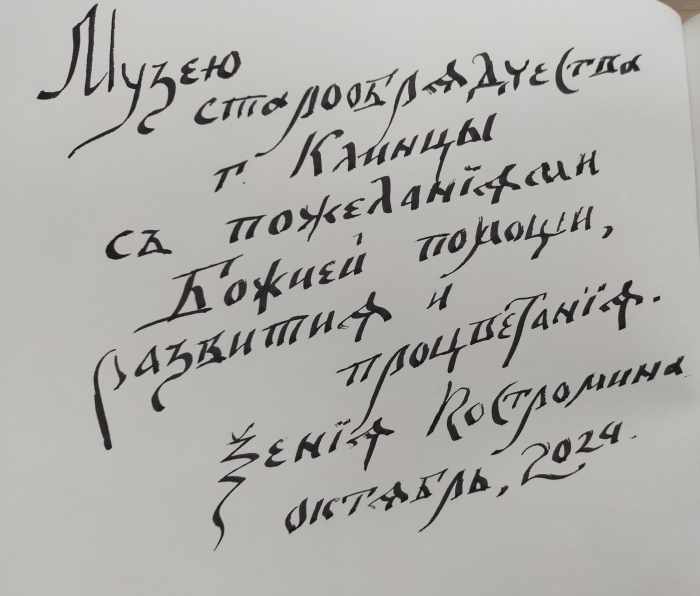 Музею
старообрѧдчества
г. Клинцы
съ пожеланїѧми
Божией помощи,
развитиѧ и
процвѣтанїѧ.
Ѯенїѧ Костромина
октѧбрь, 2024.